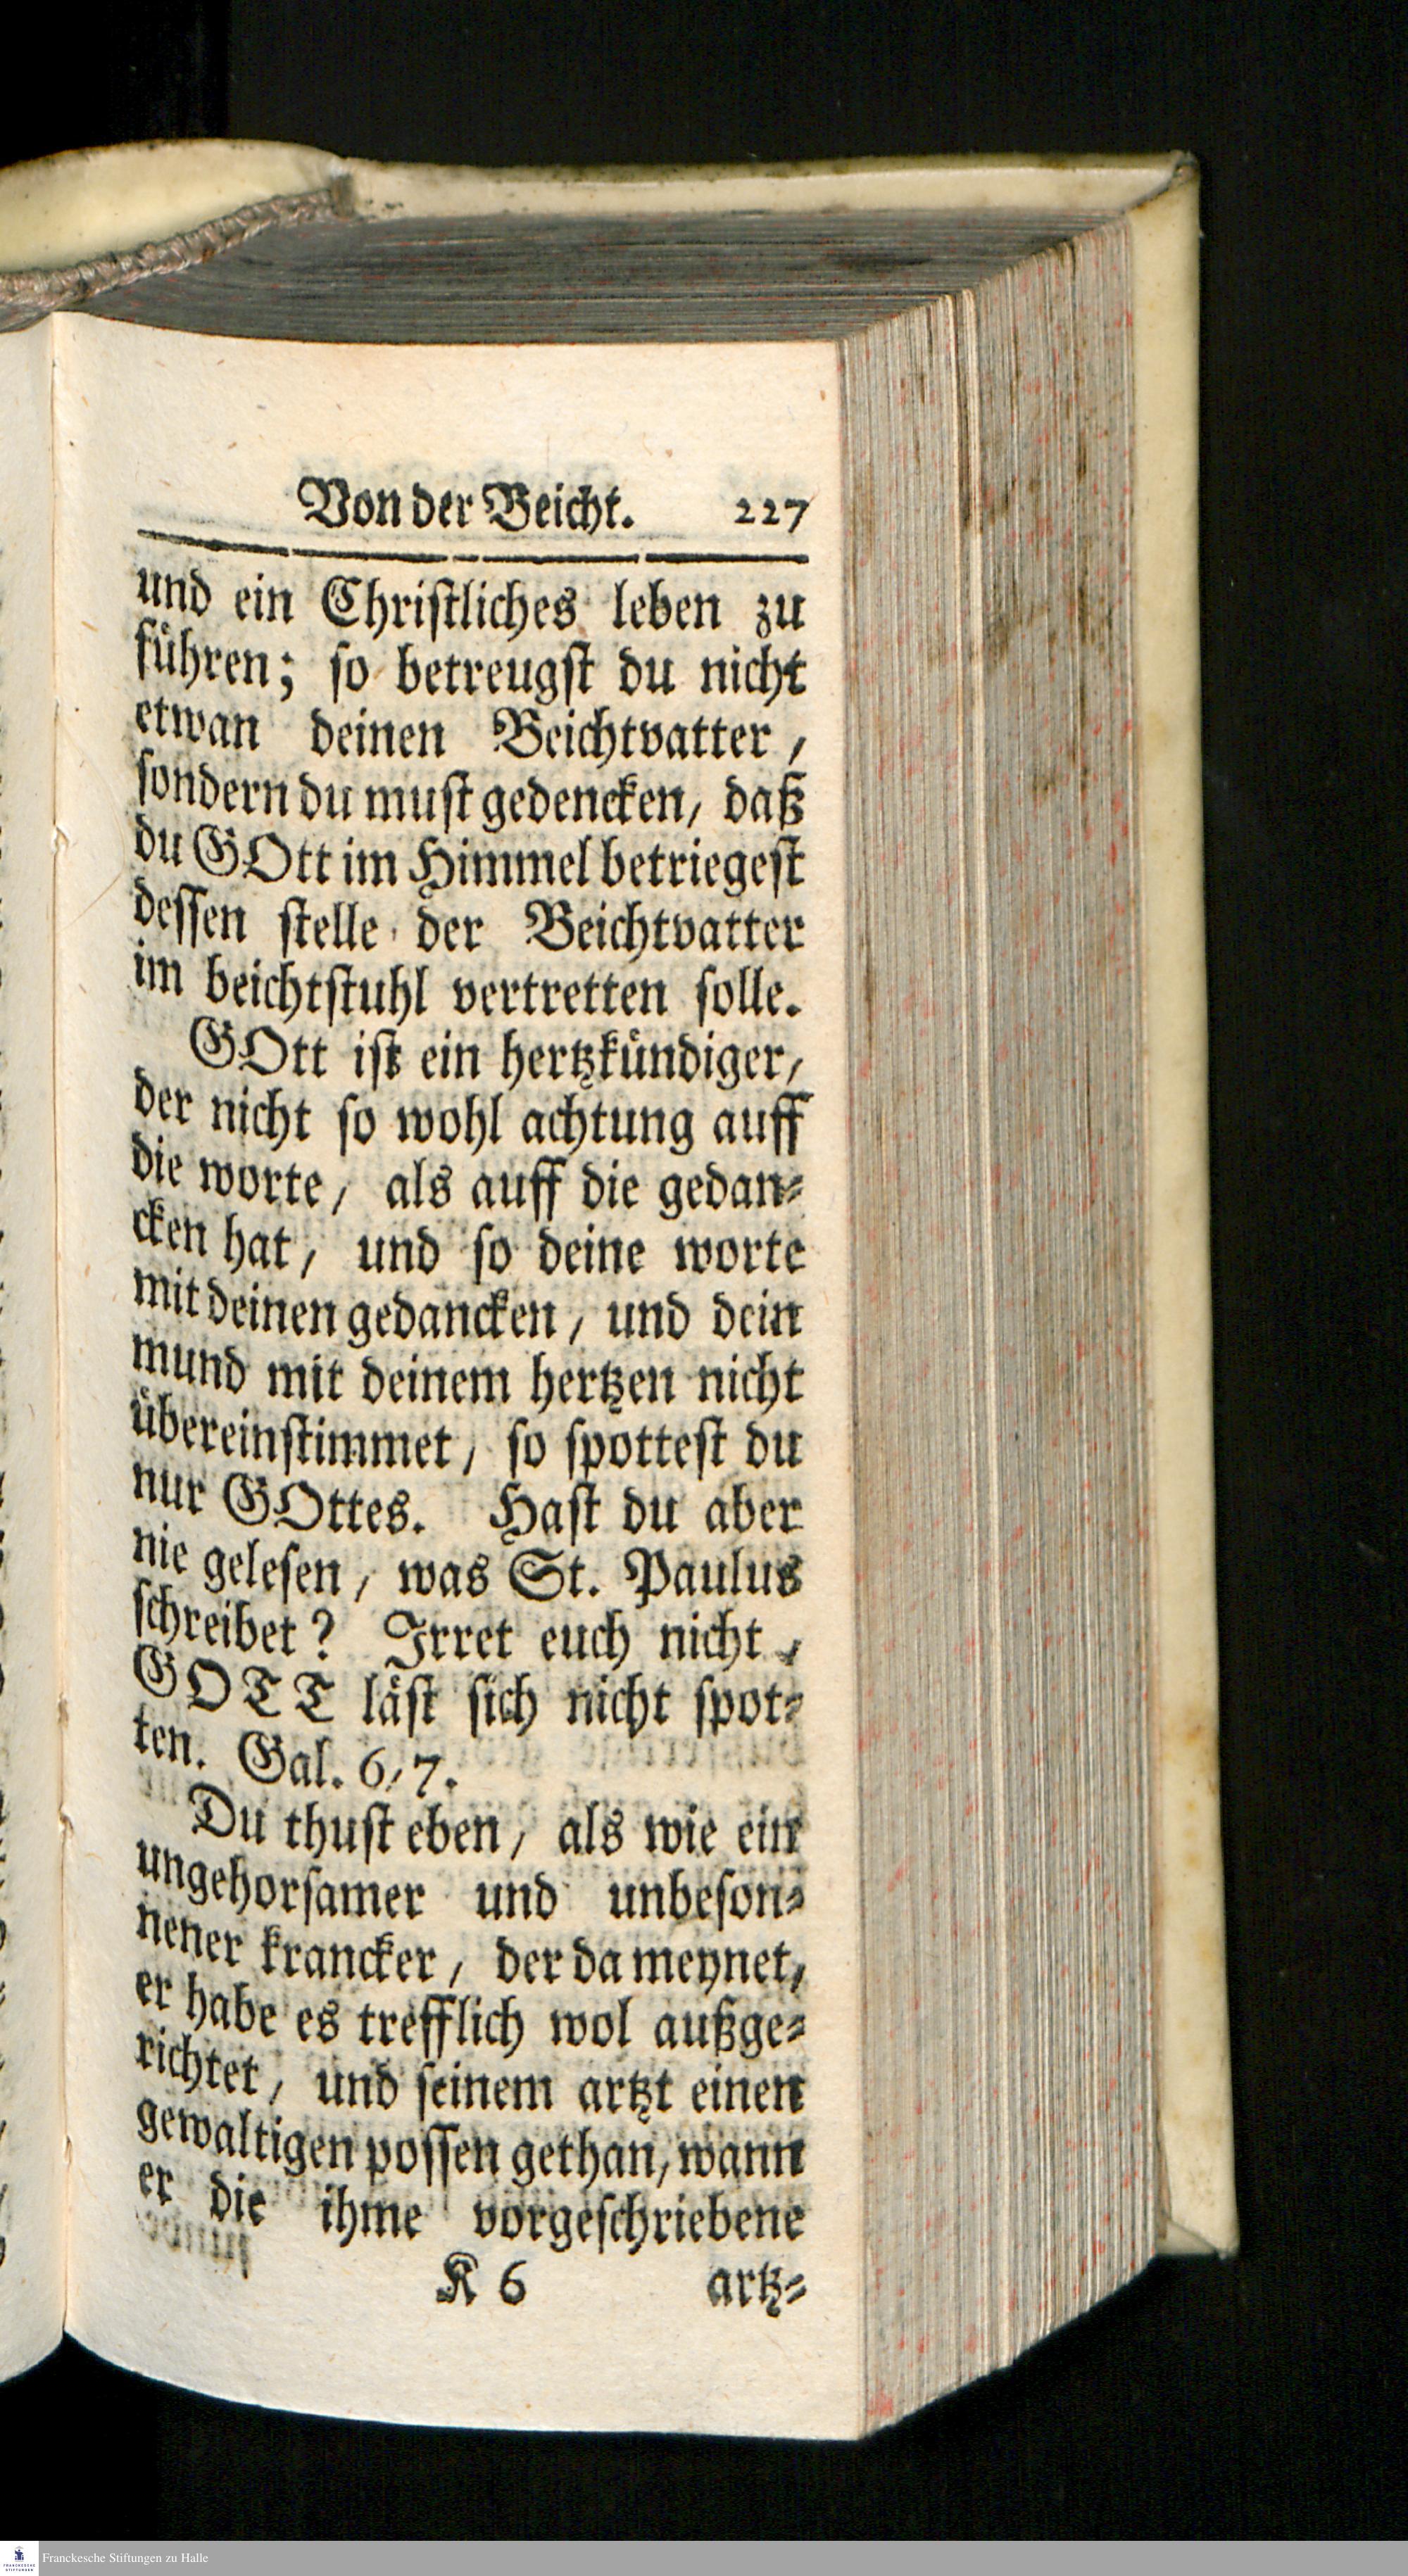 Von der Beicht. 227
und ein Christliches leben zu
führen; so betreugst du nicht
etwan deinen Beichtvatter,
sondern du must gedencken, daß
du GOtt im Himmel betriegest
dessen stelle der Beichtvatter
im beichtstuhl vertretten solle.
GOtt ist ein hertzkündiger,
der nicht so wohl achtung auff
die worte, als auff die gedan-
cken hat, und so deine worte
mit deinen gedancken, und dein
mund mit deinem hertzen nicht
übereinstimmet, so spottest du
nur GOttes. Hast du aber
nie gelesen, was St. Paulus
schreibet? Irret euch nicht,
GOTT läst sich nicht spot-
ten. Gal. 6, 7.
Du thust eben, als wie ein
ungehorsamer und unbeson-
nener krancker, der da meynet,
er habe es trefflich wol außge-
richtet, und seinem artzt einen
gewaltigen possen gethan, wann
er die ihme vorgeschriebene
K 6 artz-
Franckesche Stiftungen zu Halle